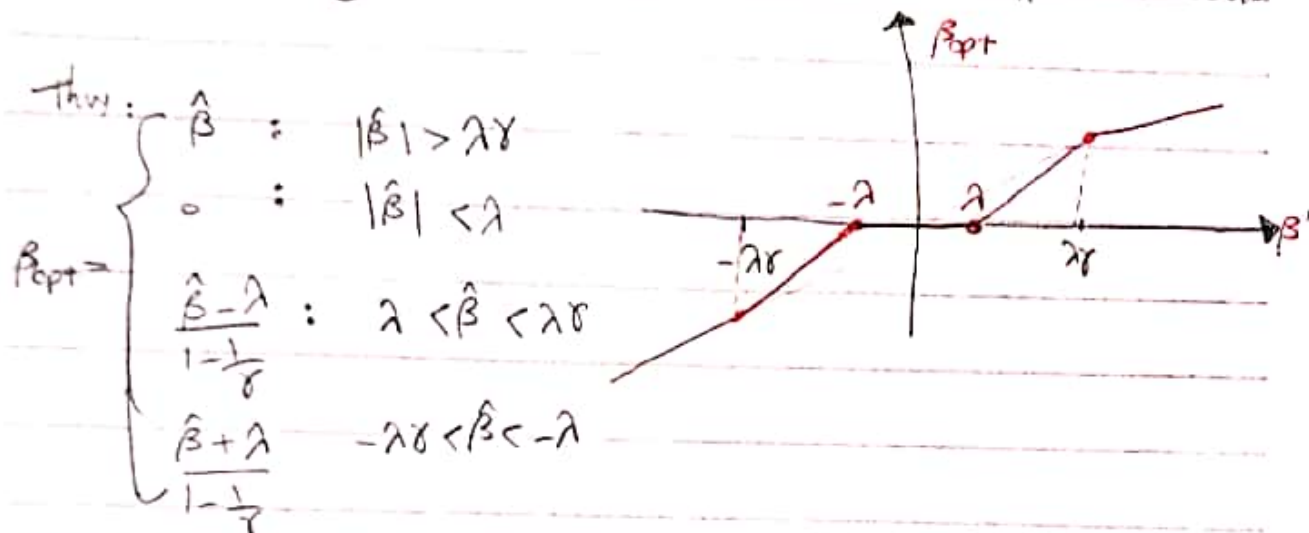 Thus:
β̂ : |β̂| > λγ
0 : |β̂| < λ
β_opt =
(β̂ - λ)/(1 - 1/γ) : λ < β̂ < λγ
(β̂ + λ)/(1 - 1/γ) -λγ < β̂ < -λ
β_opt
-λ λ
-λγ λγ
β̂